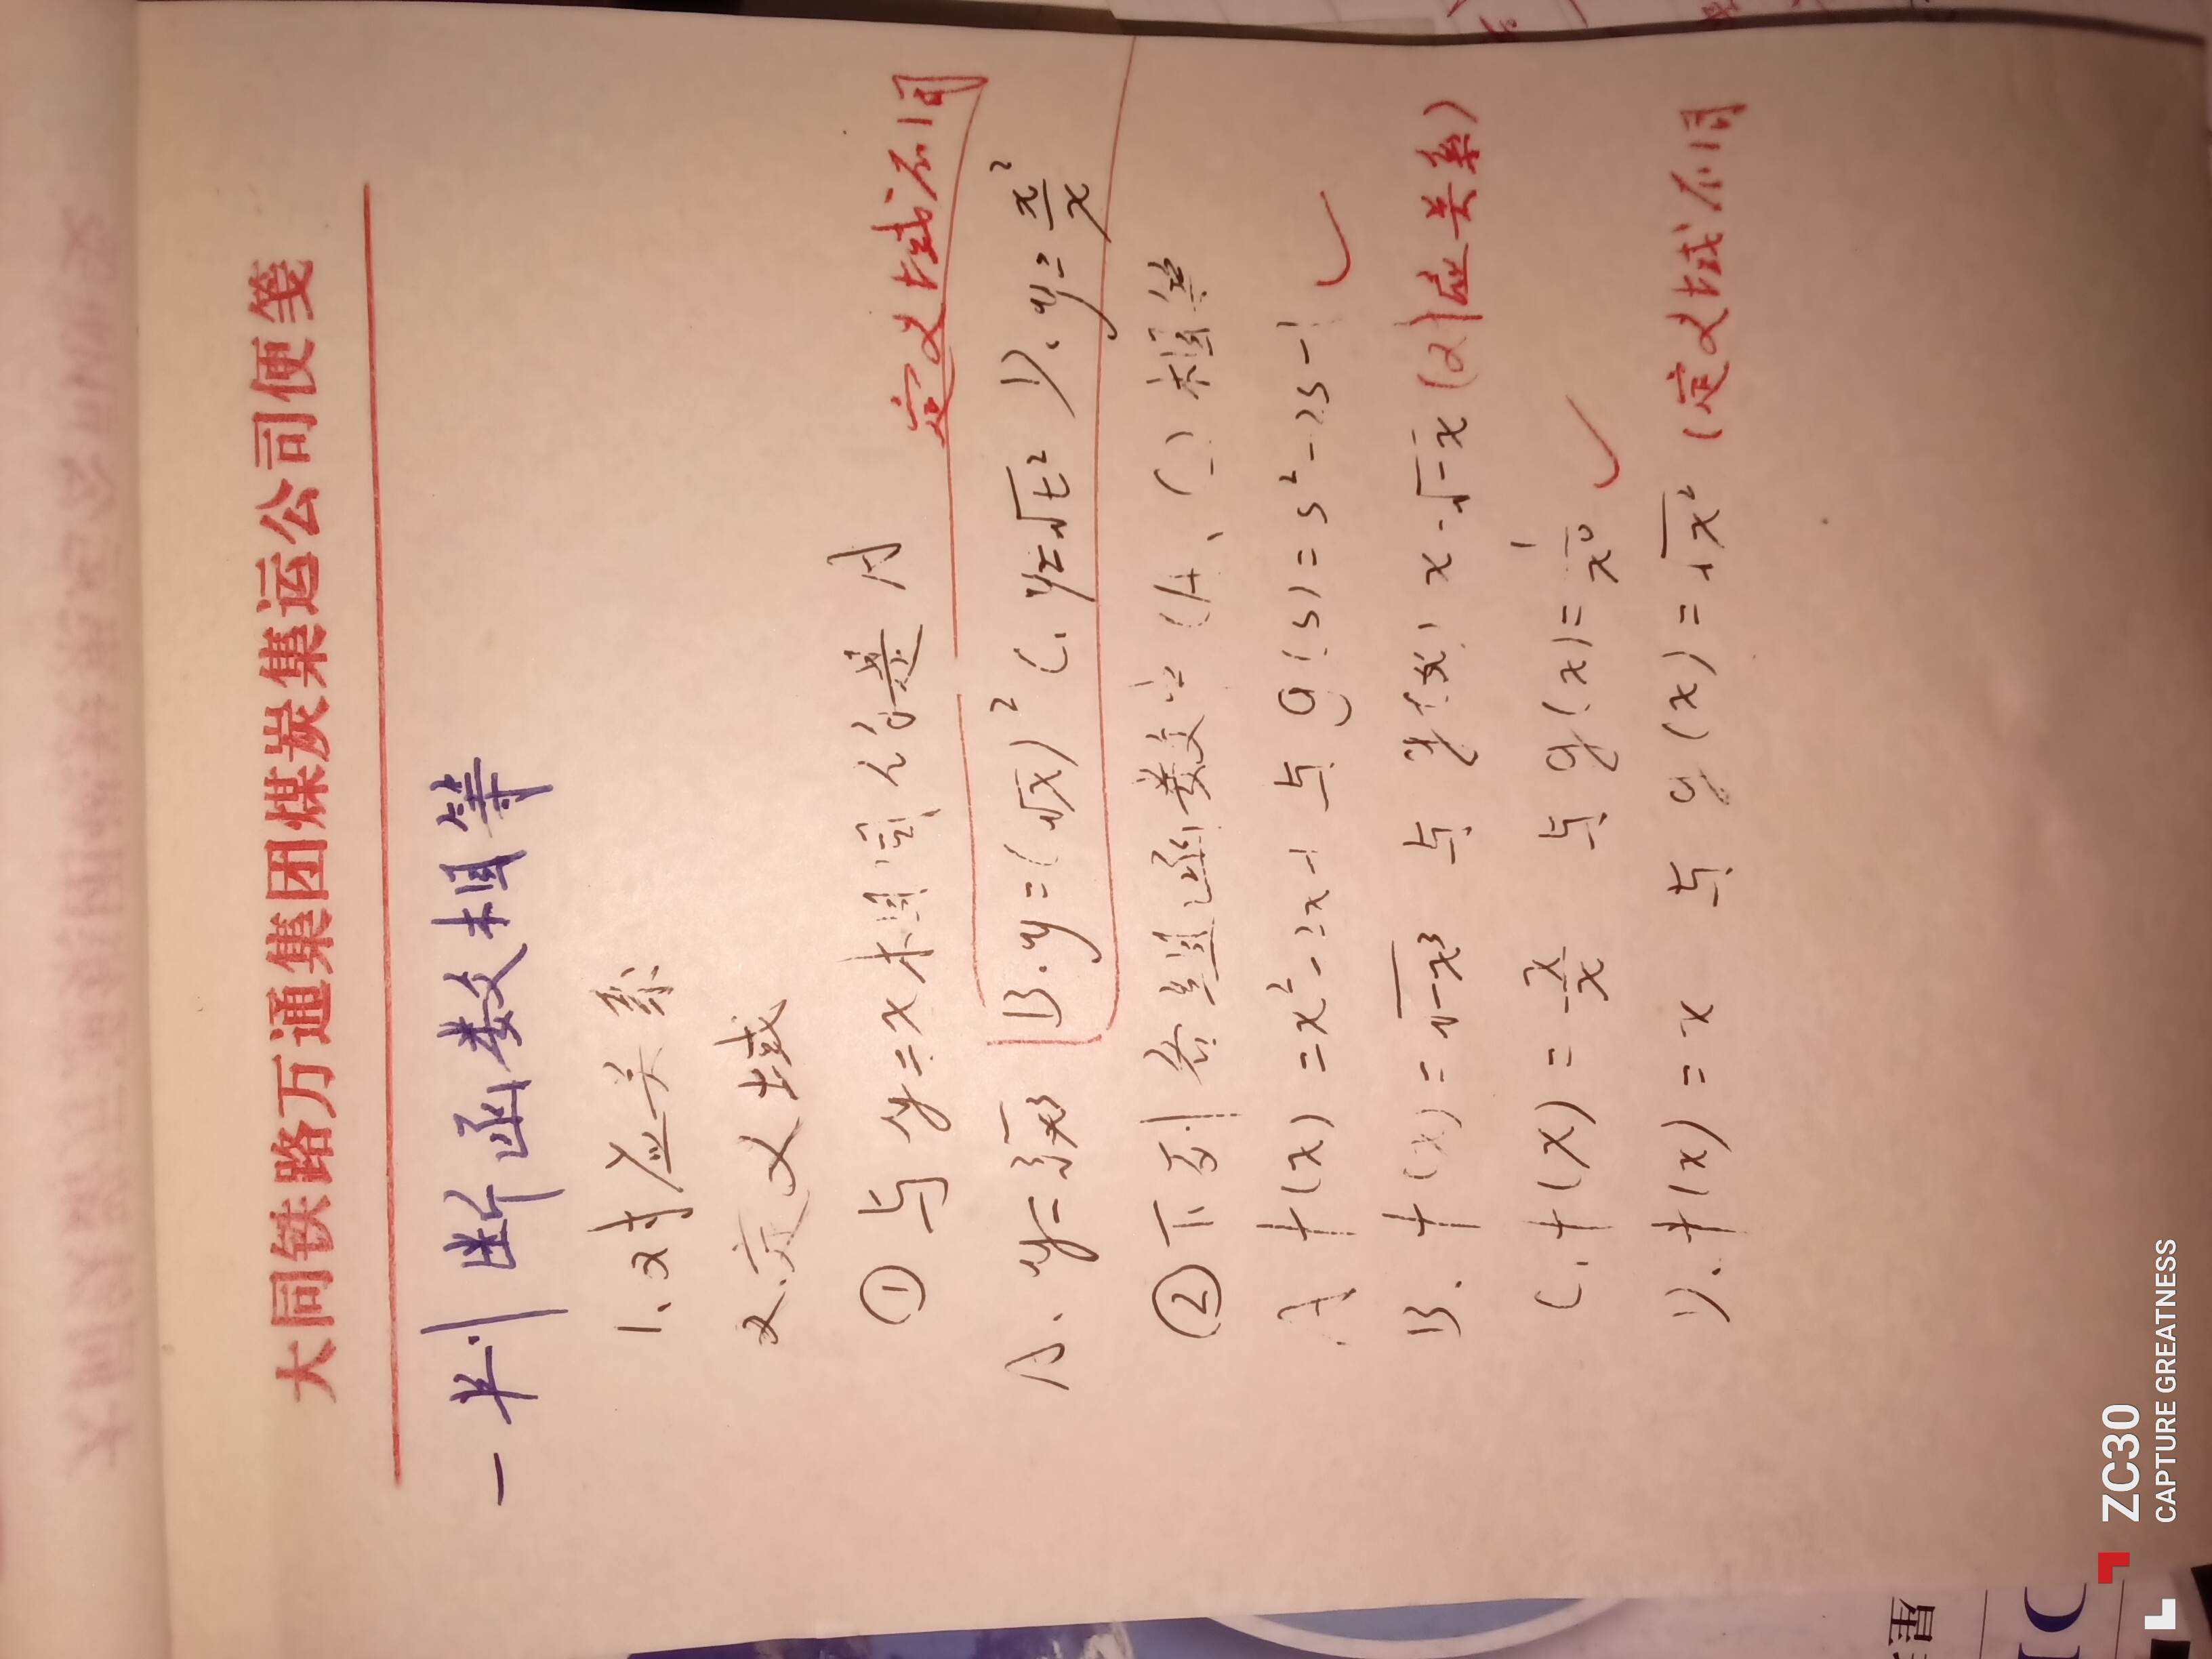 大同铁路万通集团煤炭集运公司便笺
一 判断函数相等
1、对应关系
2、定义域
① 与 y=x 相同的是 A
定义域不同
A. y=∛x³ B. y=(√x)² C. y=√t² D. y=x²/x
② 下列各组函数中 (A、C) 相等
A f(x)=x²-2x-1 与 g(s)=s²-2s-1 ✓
B. f(x)=√-x³ 与 g(x) x·√-x (对应关系)
C. f(x)=x/x 与 g(x)=1/x⁰ ✓
D. f(x)=x 与 g(x)=√x² (定义域不同
ZC30
CAPTURE GREATNESS